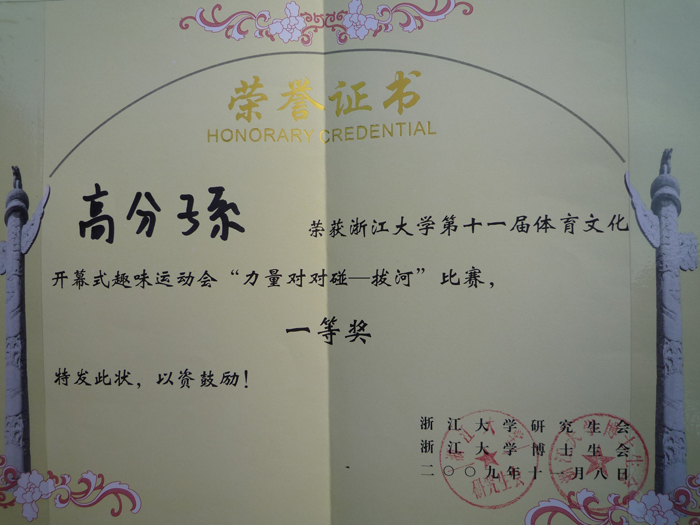 荣誉证书
HONORARY CREDENTIAL
高分子系 荣获浙江大学第十一届体育文化
开幕式趣味运动会“力量对对碰—拔河”比赛，
一等奖
特发此状，以资鼓励！
浙江大学研究生会
浙江大学博士生会
二〇〇九年十一月八日
浙江大学
研究生会
浙江大学博士生会